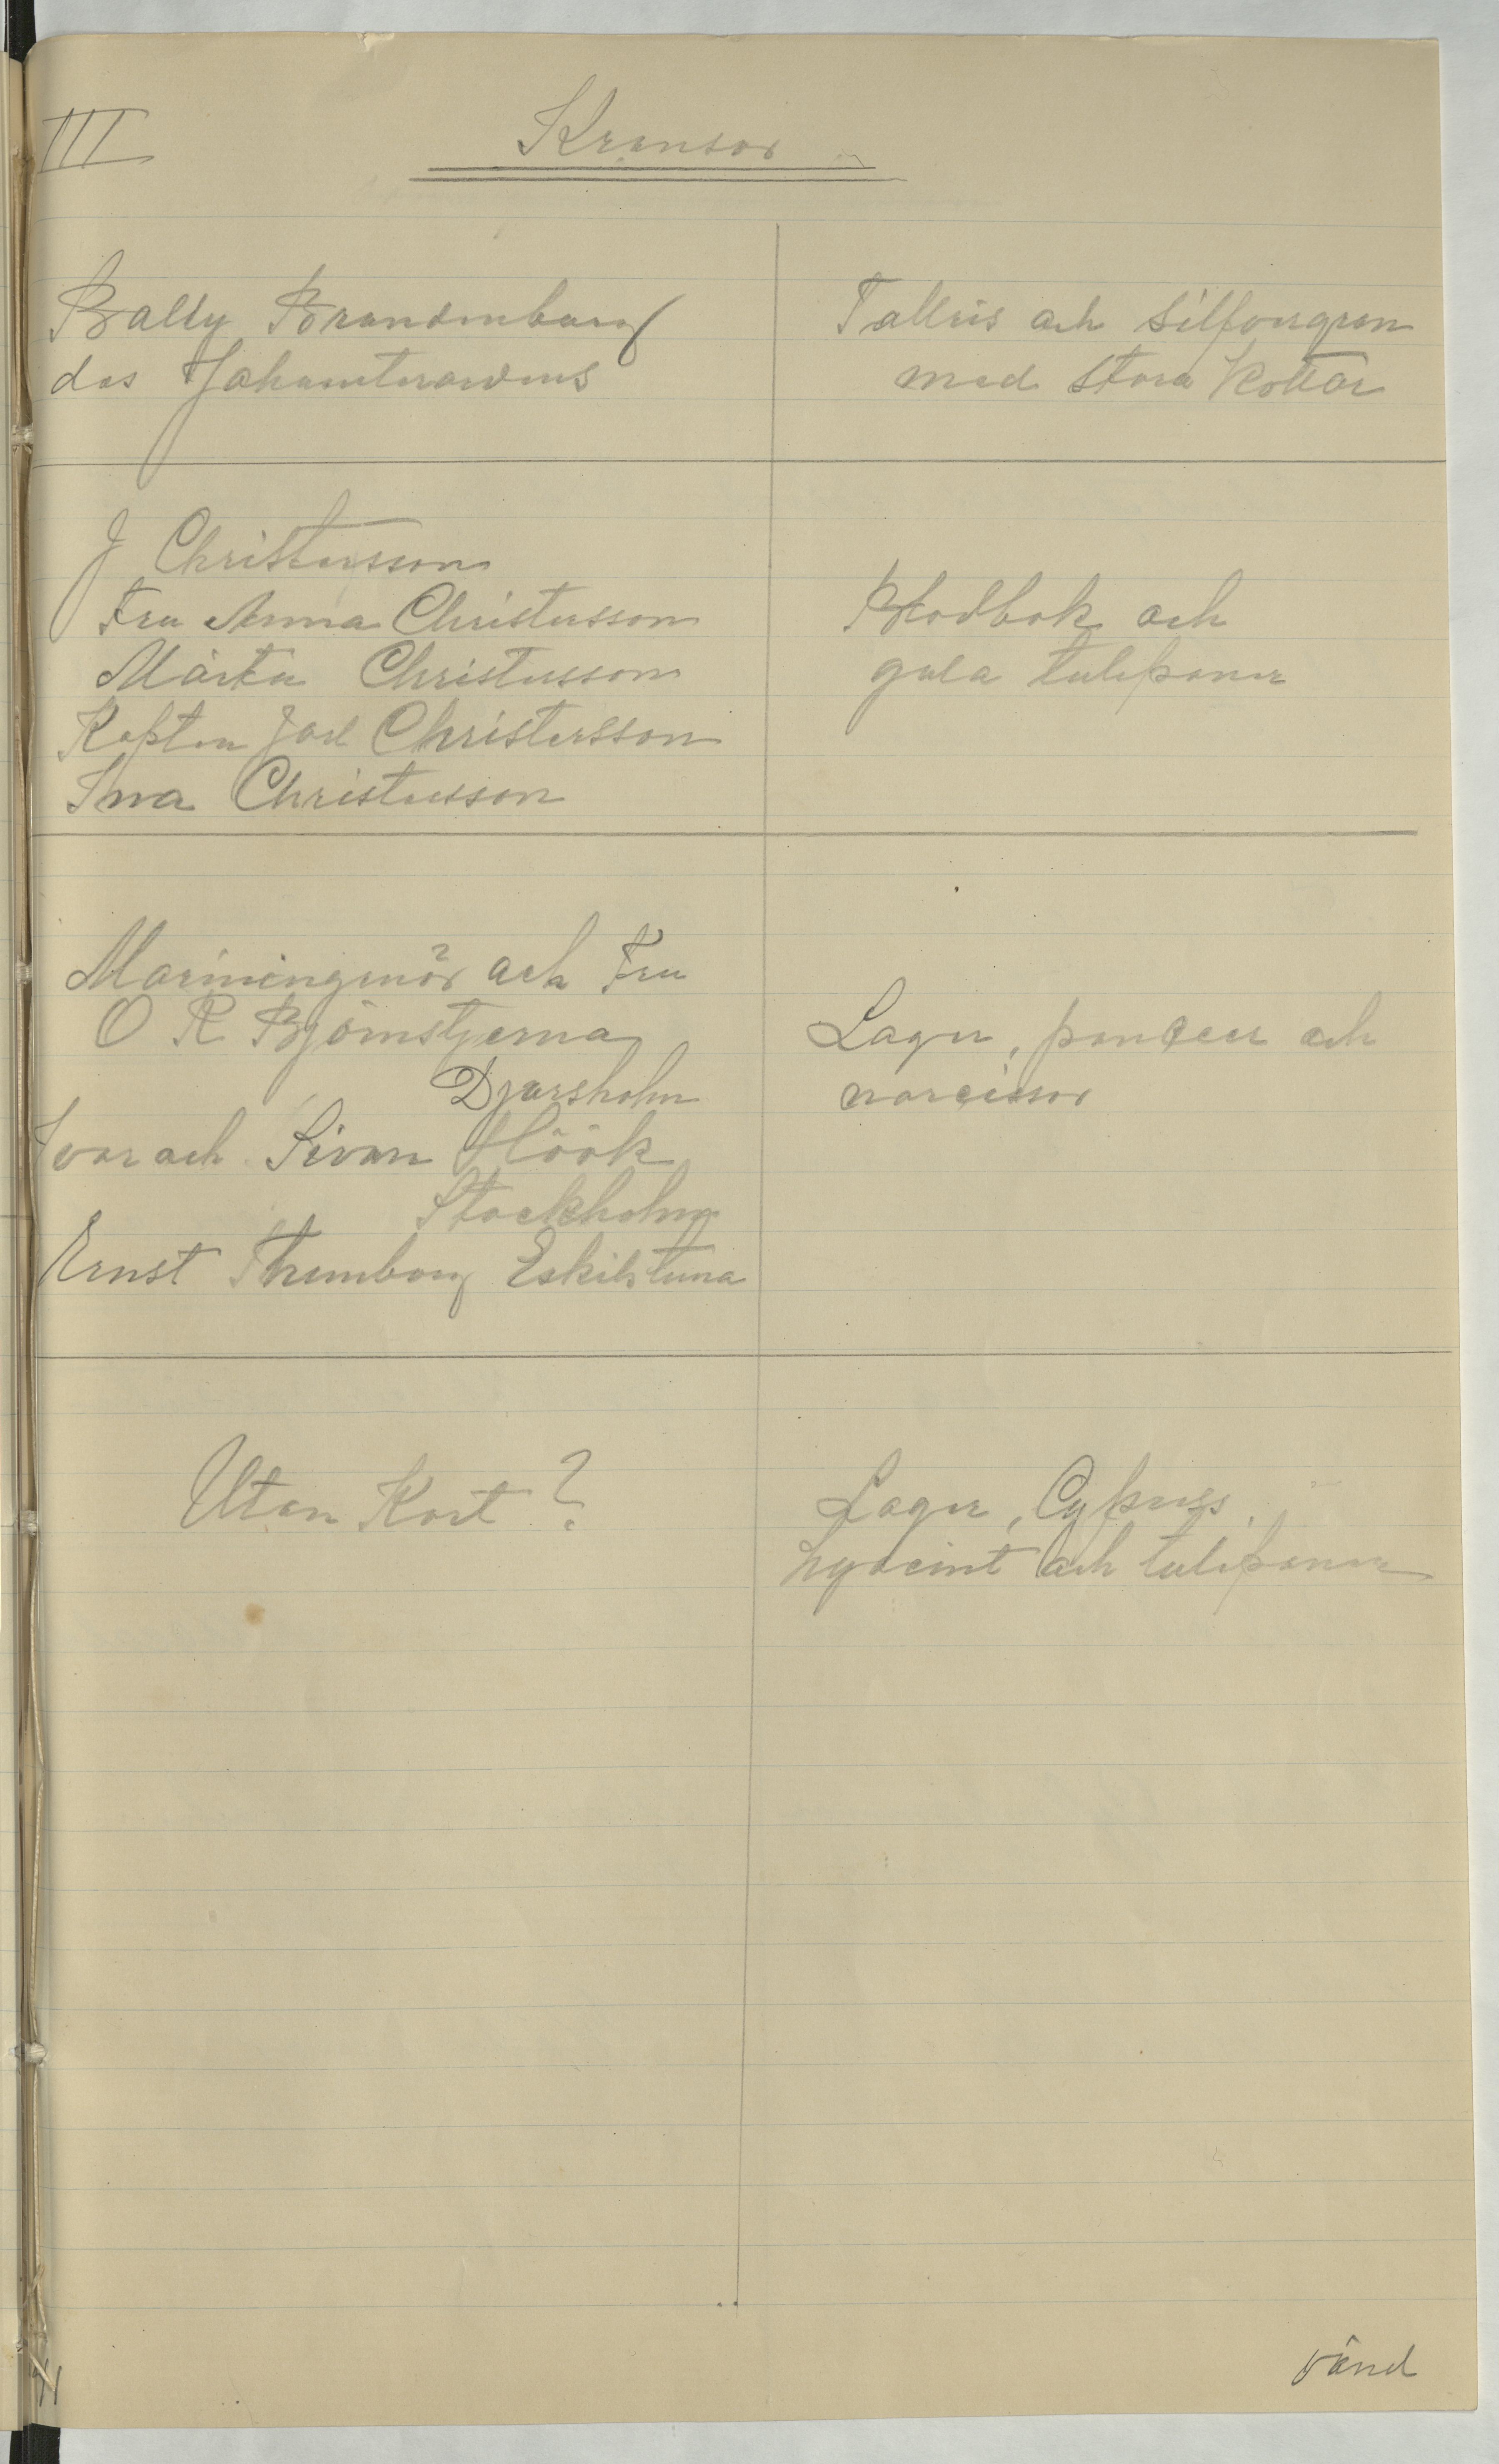 III
Kransar
Bally Brandenburg
des Johaniterordens
Tallris och Silfvergran
med Stora Kottar
J Christersson
Fru Anna Christersson
Märta Christersson
Kapten Joel Christersson
Ina Christersson
Blodbok och
gula tulipaner
Mariningeniör och Fru
O R Björnstjerna
Djursholm
Ivar och Sivan Höök
Stockholm
Ernst Thunborg Eskilstuna
Lager, pancéer och
narcisser
Utan Kort?
Lager, Cypress,
hyacint och tulipaner
vänd